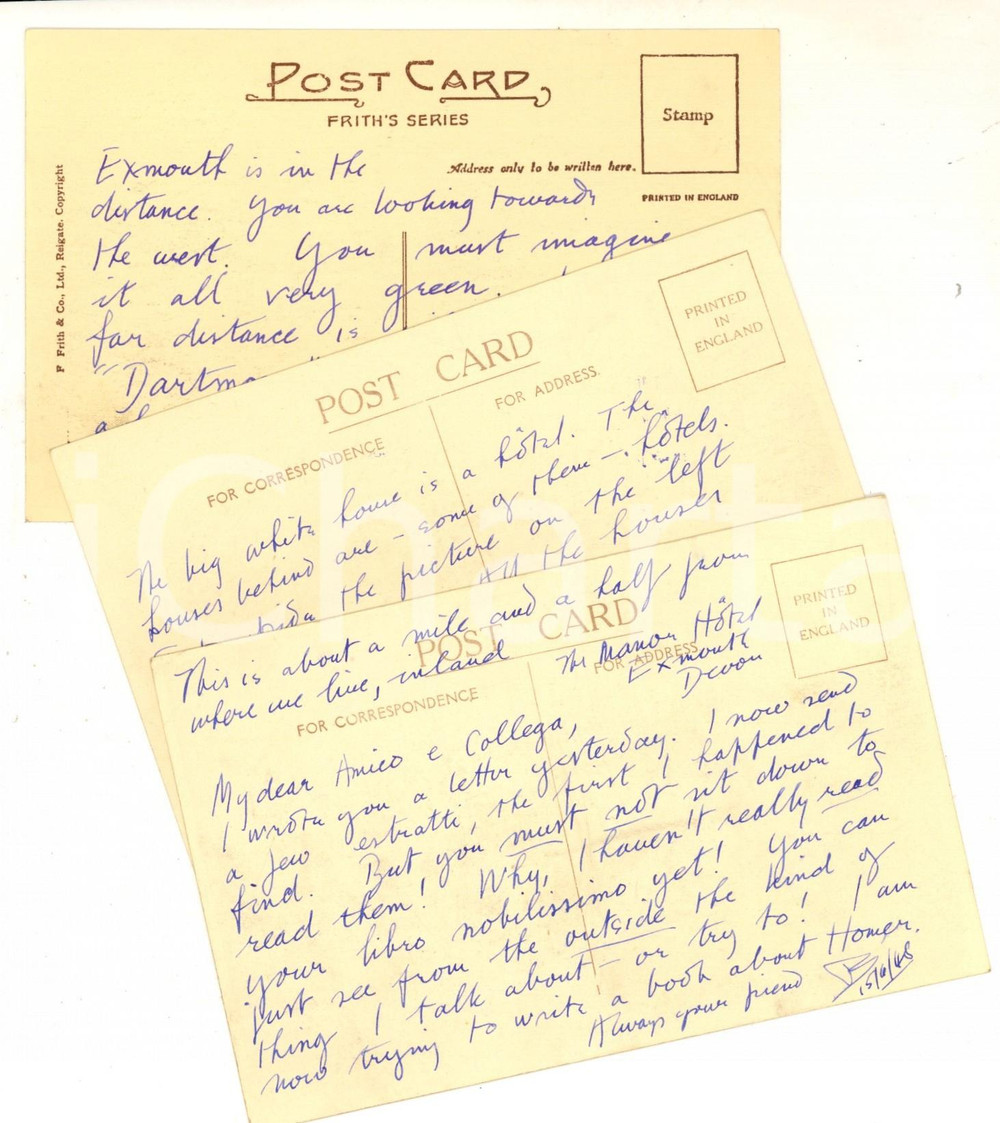 POST CARD
FRITH'S SERIES
Stamp
Address only to be written here.
PRINTED IN ENGLAND
F Frith & Co., Ltd., Reigate. Copyright
Exmouth is in the
distance. You are looking towards
the west. You must imagine
it all very green.
far distance is
"Dartmo
POST CARD
FOR CORRESPONDENCE
FOR ADDRESS.
PRINTED
IN
ENGLAND
The big white house is a hôtel. The
houses behind are – some of them – hôtels.
the picture on the left
All the houses
POST CARD
FOR CORRESPONDENCE
FOR ADDRESS
PRINTED
IN
ENGLAND
This is about a mile and a half from
where we live, inland
The Manor Hôtel
Exmouth
Devon
My dear Amico e Collega,
I wrote you a letter yesterday. I now send
a few estratti, the first I happened to
find. But you must not sit down to
read them! Why, I haven't really read
your libro nobilissimo yet! You can
just see from the outside the kind of
thing I talk about – or try to! I am
now trying to write a book about Homer.
Always your friend
15/6/48
iCharta